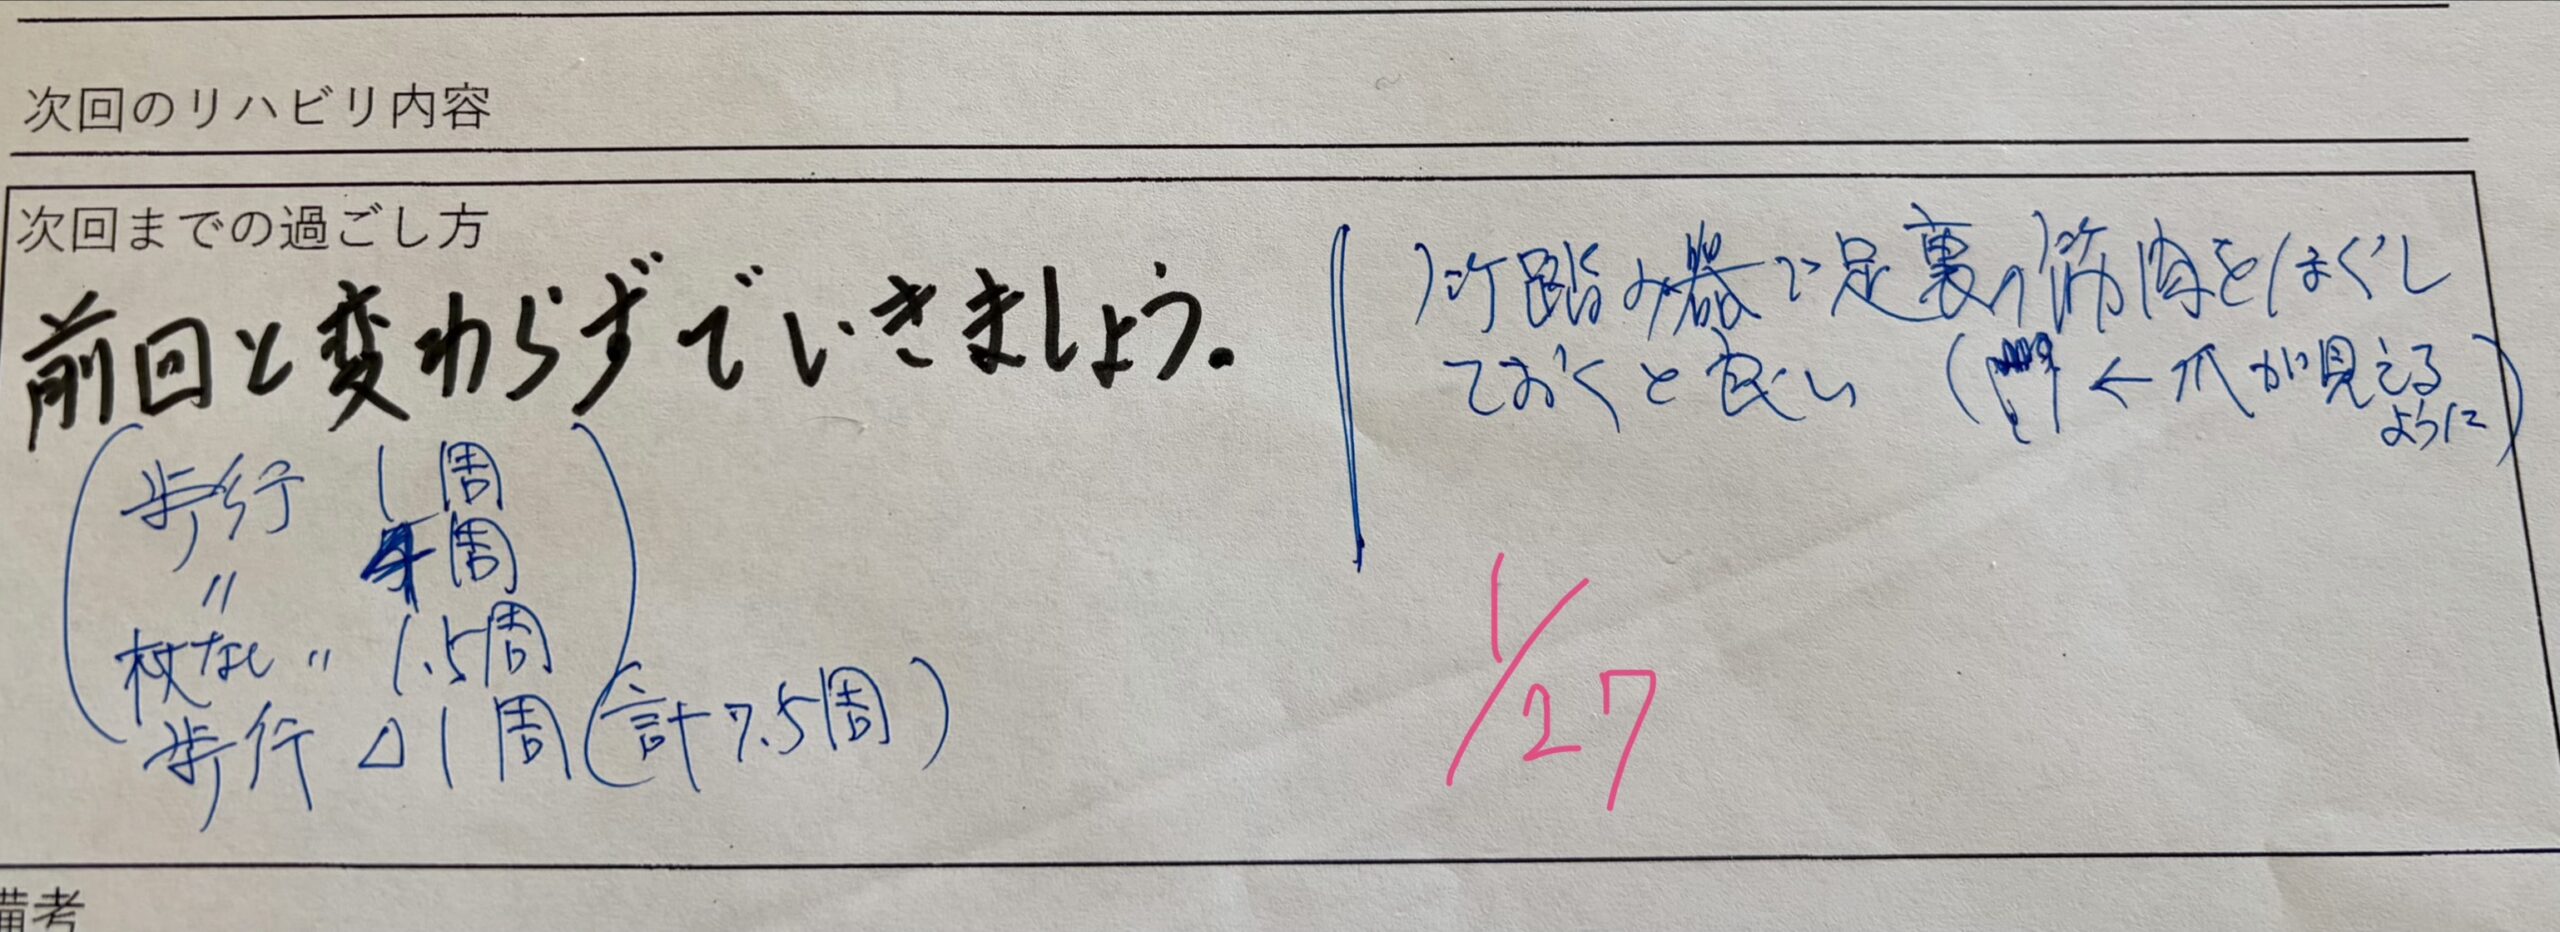 次回のリハビリ内容
次回までの過ごし方
前回と変わらずでいきましょう。
歩行 1周
〃 4周
杖なし〃 1.5周
歩行 1周(計7.5周)
竹踏み器で足裏の筋肉をほぐし
ておくと良い (←爪が見える
ように)
1/27
備考